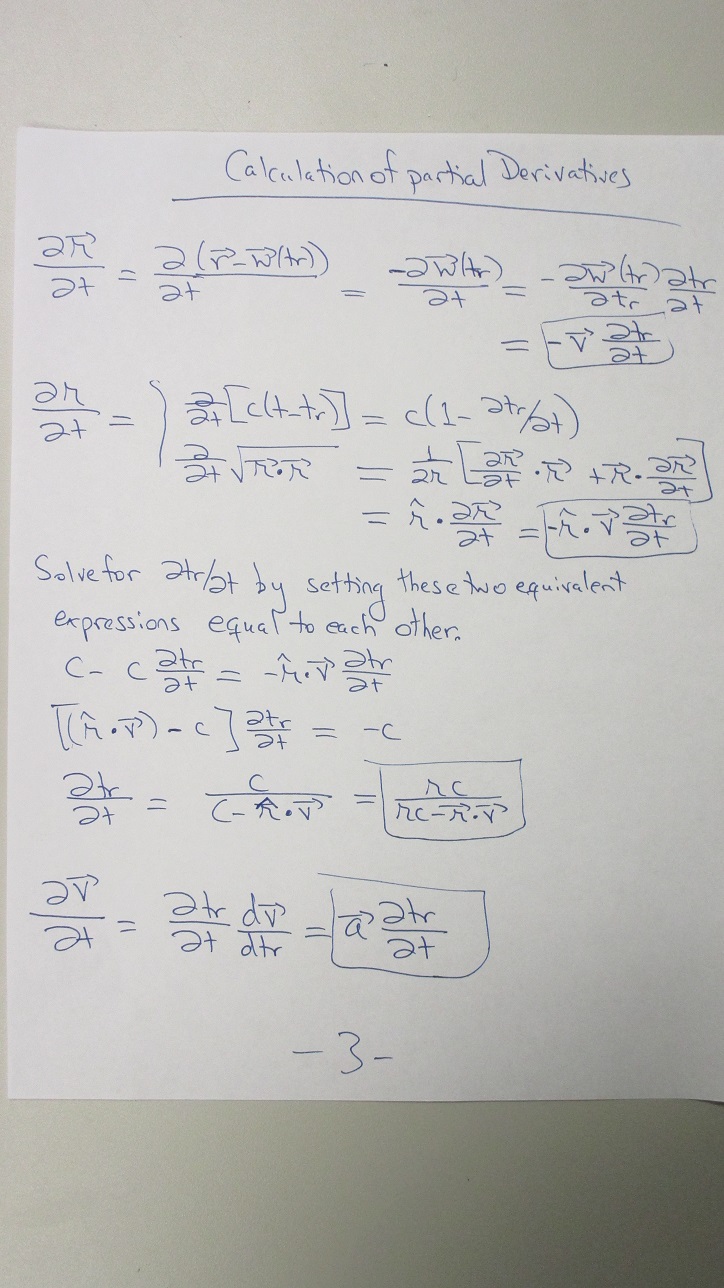 Calculation of partial Derivatives
∂𝓇⃗/∂t = ∂(r⃗-w⃗(tr))/∂t = -∂w⃗(tr)/∂t = -∂w⃗(tr)/∂tr ∂tr/∂t
= -v⃗ ∂tr/∂t
∂𝓇/∂t = { ∂/∂t [c(t-tr)] = c(1-∂tr/∂t)
∂/∂t √𝓇⃗·𝓇⃗ = 1/2𝓇 [∂𝓇⃗/∂t · 𝓇⃗ + 𝓇⃗ · ∂𝓇⃗/∂t]
= 𝓇̂ · ∂𝓇⃗/∂t = -𝓇̂ · v⃗ ∂tr/∂t
Solve for ∂tr/∂t by setting these two equivalent
expressions equal to each other.
c - c ∂tr/∂t = -𝓇̂ · v⃗ ∂tr/∂t
[(𝓇̂ · v⃗) - c] ∂tr/∂t = -c
∂tr/∂t = c/(c - 𝓇̂ · v⃗) = 𝓇c/(𝓇c - 𝓇⃗ · v⃗)
∂v⃗/∂t = ∂tr/∂t dv⃗/dtr = a⃗ ∂tr/∂t
-3-